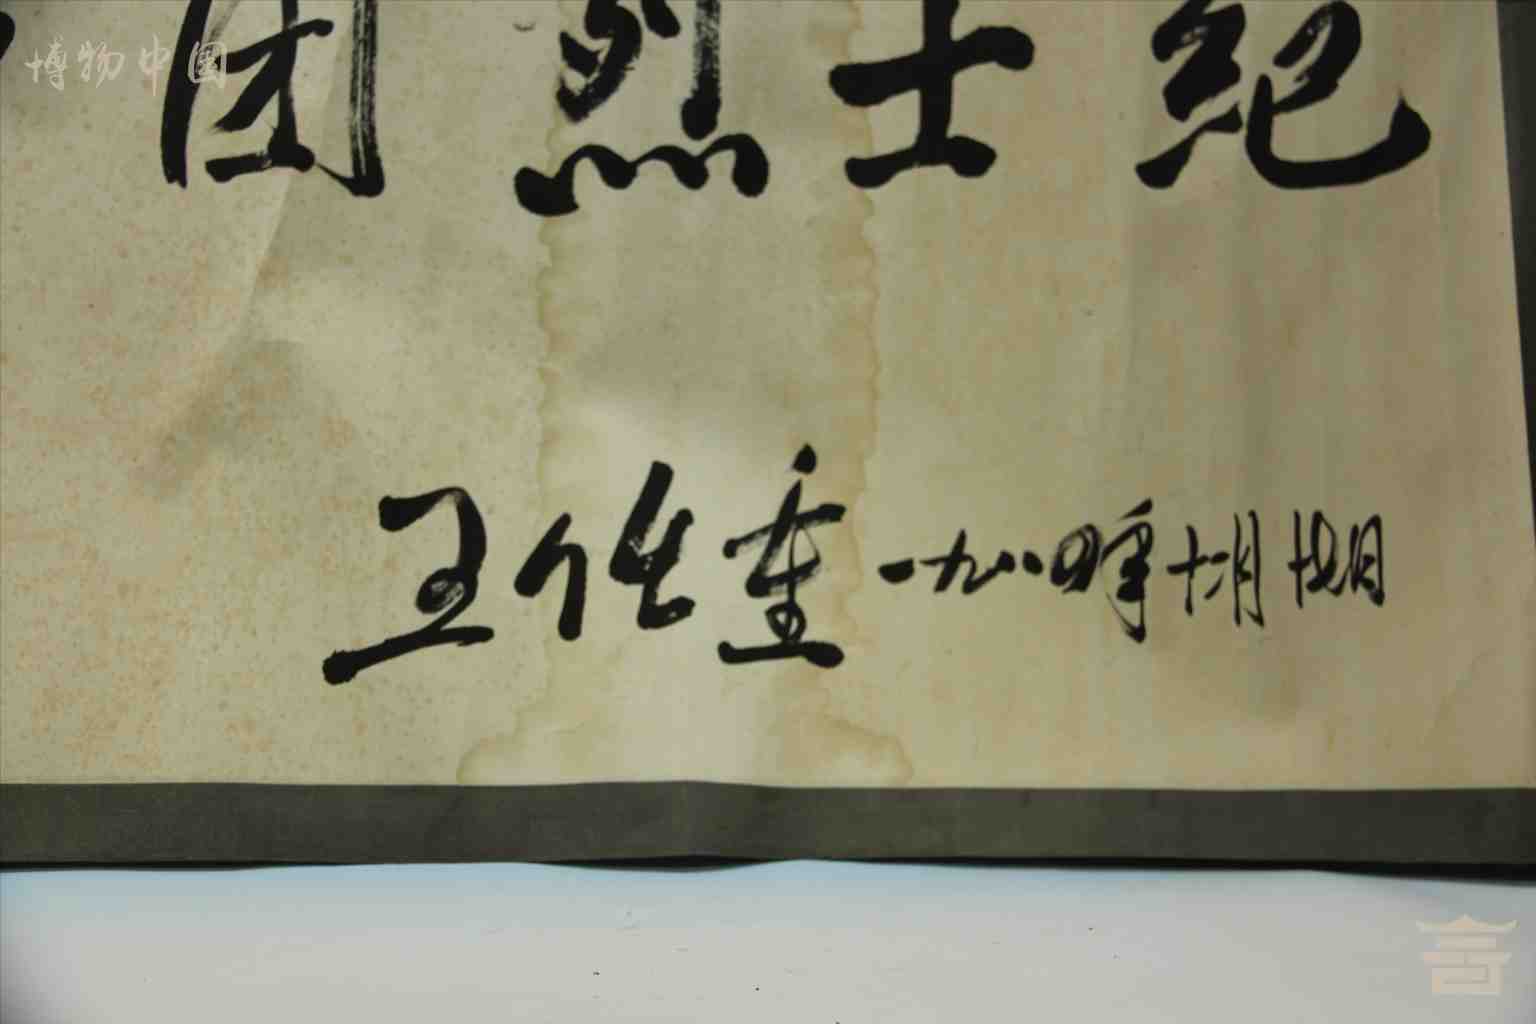 博物中國
团烈士纪
王任重 一九八四年